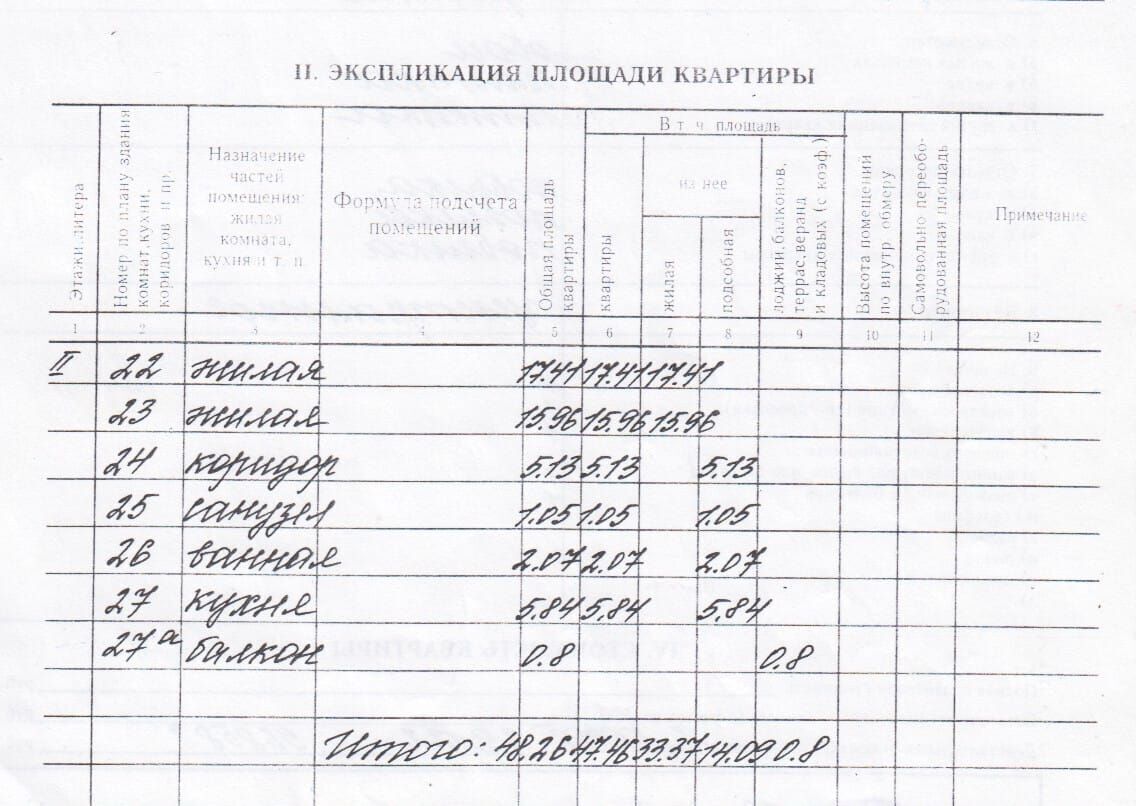 II. ЭКСПЛИКАЦИЯ ПЛОЩАДИ КВАРТИРЫ
Этажи, литера
Номер по плану здания комнат, кухни, коридоров и пр.
Назначение
частей
помещения:
жилая
комната,
кухня и т. п.
Формула подсчета
помещений
Общая площадь квартиры
В т. ч. площадь
квартиры
из нее
жилая
подсобная
лоджий, балконов, террас, веранд и кладовых (с коэф.)
Высота помещений по внутр. обмеру
Самовольно переоборудованная площадь
Примечание
1 2 3 4 5 6 7 8 9 10 11 12
II 22 жилая 17.41 17.41 17.41
23 жилая 15.96 15.96 15.96
24 коридор 5.13 5.13 5.13
25 санузел 1.05 1.05 1.05
26 ванная 2.07 2.07 2.07
27 кухня 5.84 5.84 5.84
27а балкон 0.8 0.8
Итого: 48.26 47.46 33.37 14.09 0.8